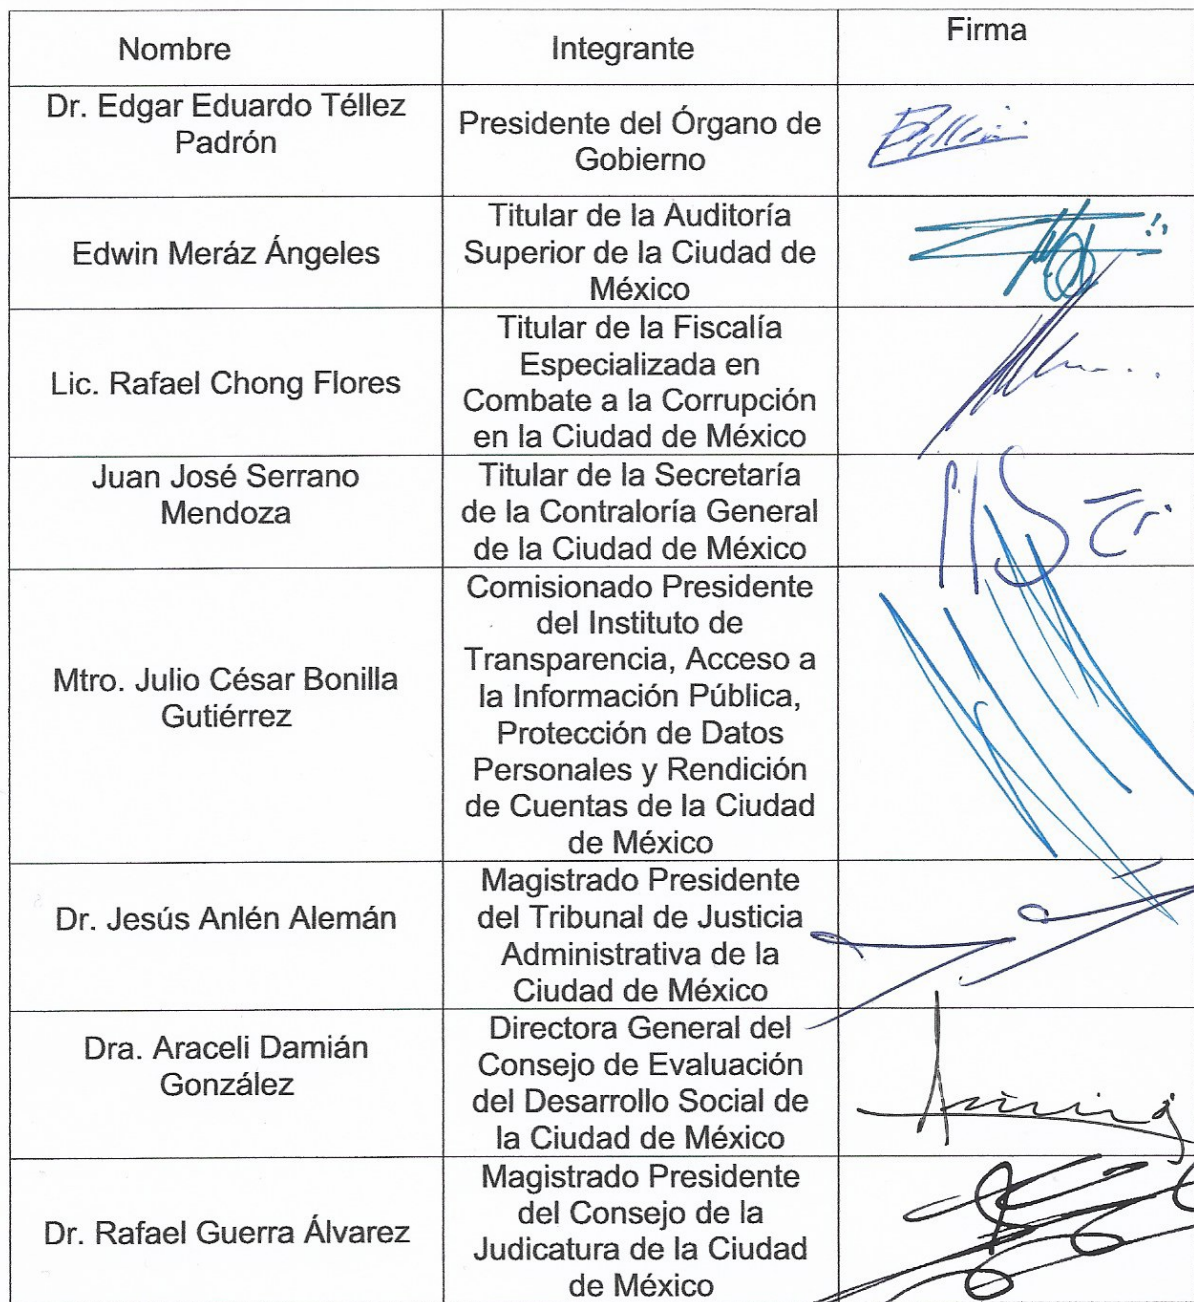 Nombre
Integrante
Firma
Dr. Edgar Eduardo Téllez
Padrón
Presidente del Órgano de
Gobierno
Edwin Meráz Ángeles
Titular de la Auditoría
Superior de la Ciudad de
México
Lic. Rafael Chong Flores
Titular de la Fiscalía
Especializada en
Combate a la Corrupción
en la Ciudad de México
Juan José Serrano
Mendoza
Titular de la Secretaría
de la Contraloría General
de la Ciudad de México
Mtro. Julio César Bonilla
Gutiérrez
Comisionado Presidente
del Instituto de
Transparencia, Acceso a
la Información Pública,
Protección de Datos
Personales y Rendición
de Cuentas de la Ciudad
de México
Dr. Jesús Anlén Alemán
Magistrado Presidente
del Tribunal de Justicia
Administrativa de la
Ciudad de México
Dra. Araceli Damián
González
Directora General del
Consejo de Evaluación
del Desarrollo Social de
la Ciudad de México
Dr. Rafael Guerra Álvarez
Magistrado Presidente
del Consejo de la
Judicatura de la Ciudad
de México